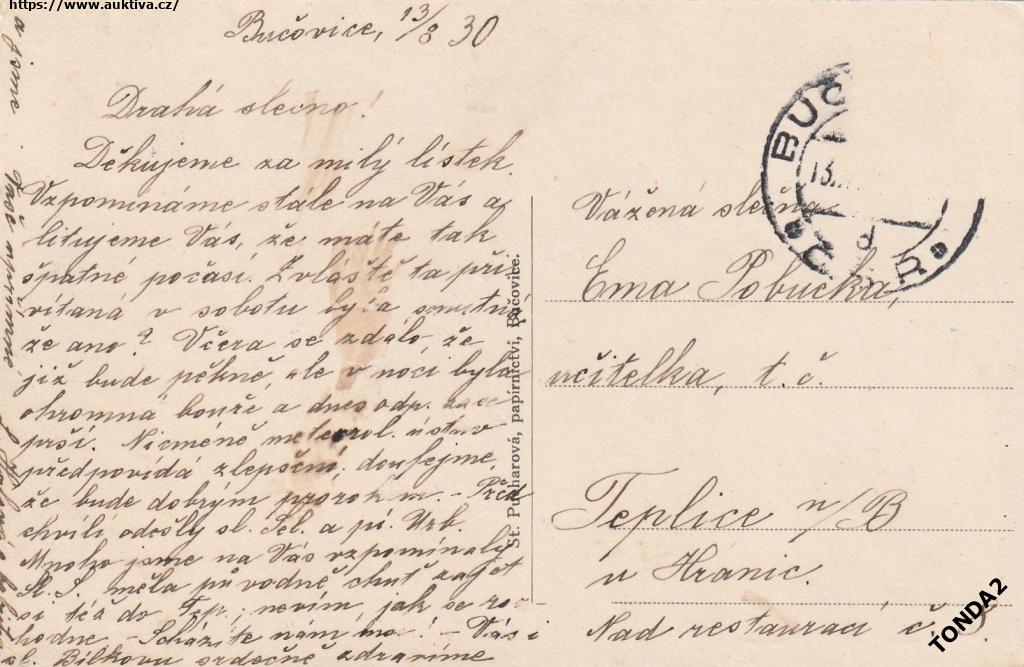 https://www.auktiva.cz/
Bučovice, 13/8 30
Drahá slečno!
Děkujeme za milý lístek.
Vzpomínáme stále na Vás a
litujeme Vás, že máte tak
špatné počasí. Zvláště ta při
vítaná v sobotu byla smutná,
že ano? Včera se zdálo, že
již bude pěkně, ale v noci byla
ohromná bouře a dnes odp. zase
prší. Nicméně meteorol. ústav
předpovídá zlepšení, doufejme,
že bude dobrým prorokem. - Před
chvílí odešly sl. Sel. a pí. Urb.
Mnoho jsme na Vás vzpomínaly
Sl. S. měla původně chuť zajet
si též do Tep.; nevím, jak se roz-
hodne - Scházíte nám moc! - Vás i
sl. Bílkovu srdečně zdravíme
a jsme
St. Pucharová, papírnictví, Bučovice.
BUČ
13.
d
Č.S.R.
Vážená slečna
Ema Pobucká,
učitelka, t. č.
Teplice n/B
u Hranic.
Nad restaurací č.
TONDA2